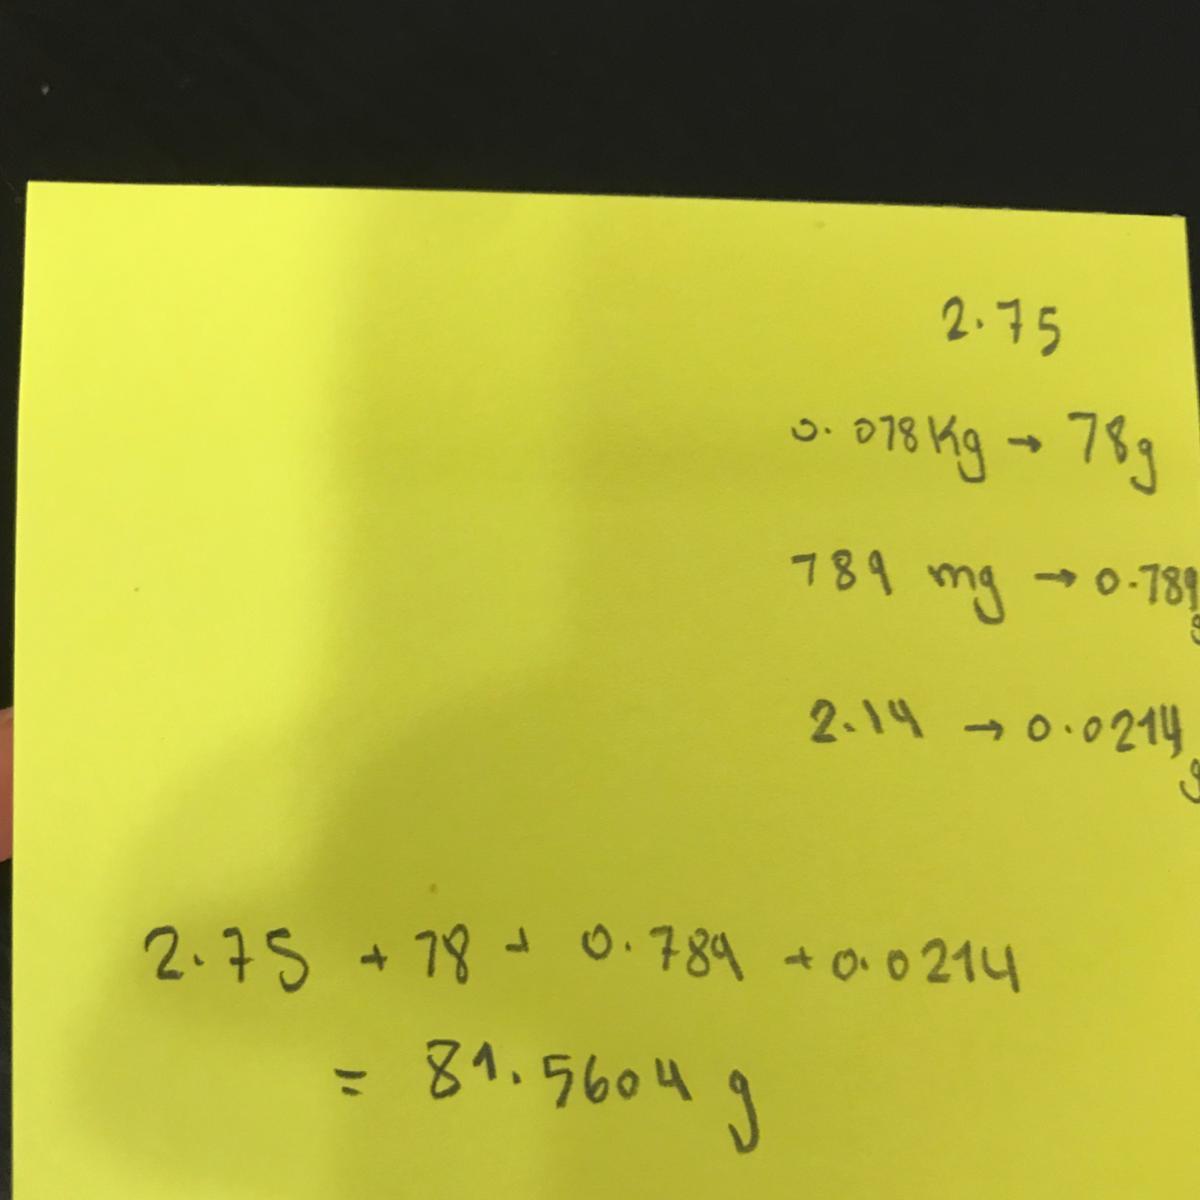 2.75
0.078Kg → 78g
789 mg → 0.789 g
2.14 → 0.0214 g
2.75 + 78 + 0.789 + 0.0214
= 81.5604 g